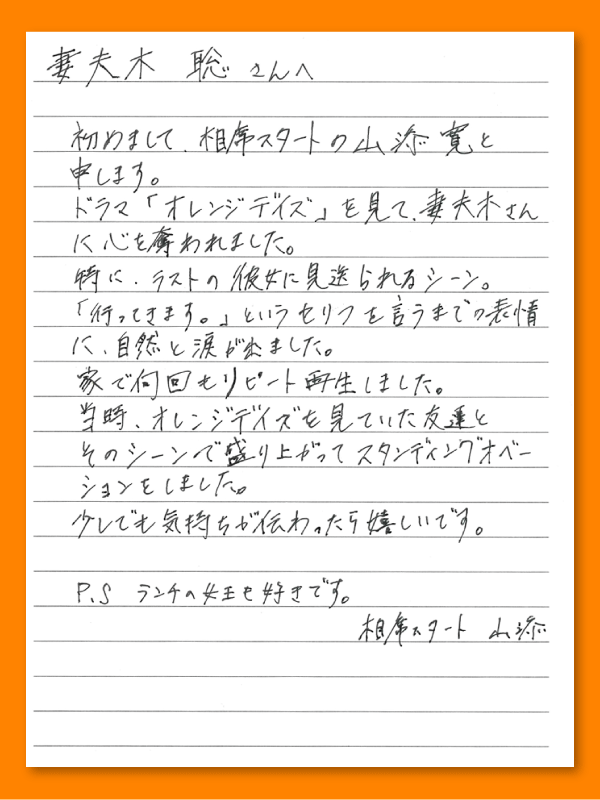 妻夫木 聡さんへ
初めまして、相席スタートの山添 寛と
申します。
ドラマ「オレンジデイズ」を見て、妻夫木さん
に心を奪われました。
特に、ラストの彼女に見送られるシーン。
「行ってきます。」というセリフを言うまでの表情
に、自然と涙が出ました。
家で何回もリピート再生しました。
当時、オレンジデイズを見ていた友達と
そのシーンで盛り上がってスタンディングオベー
ションをしました。
少しでも気持ちが伝わったら嬉しいです。
P.S ランチの女王も好きです。
相席スタート 山添